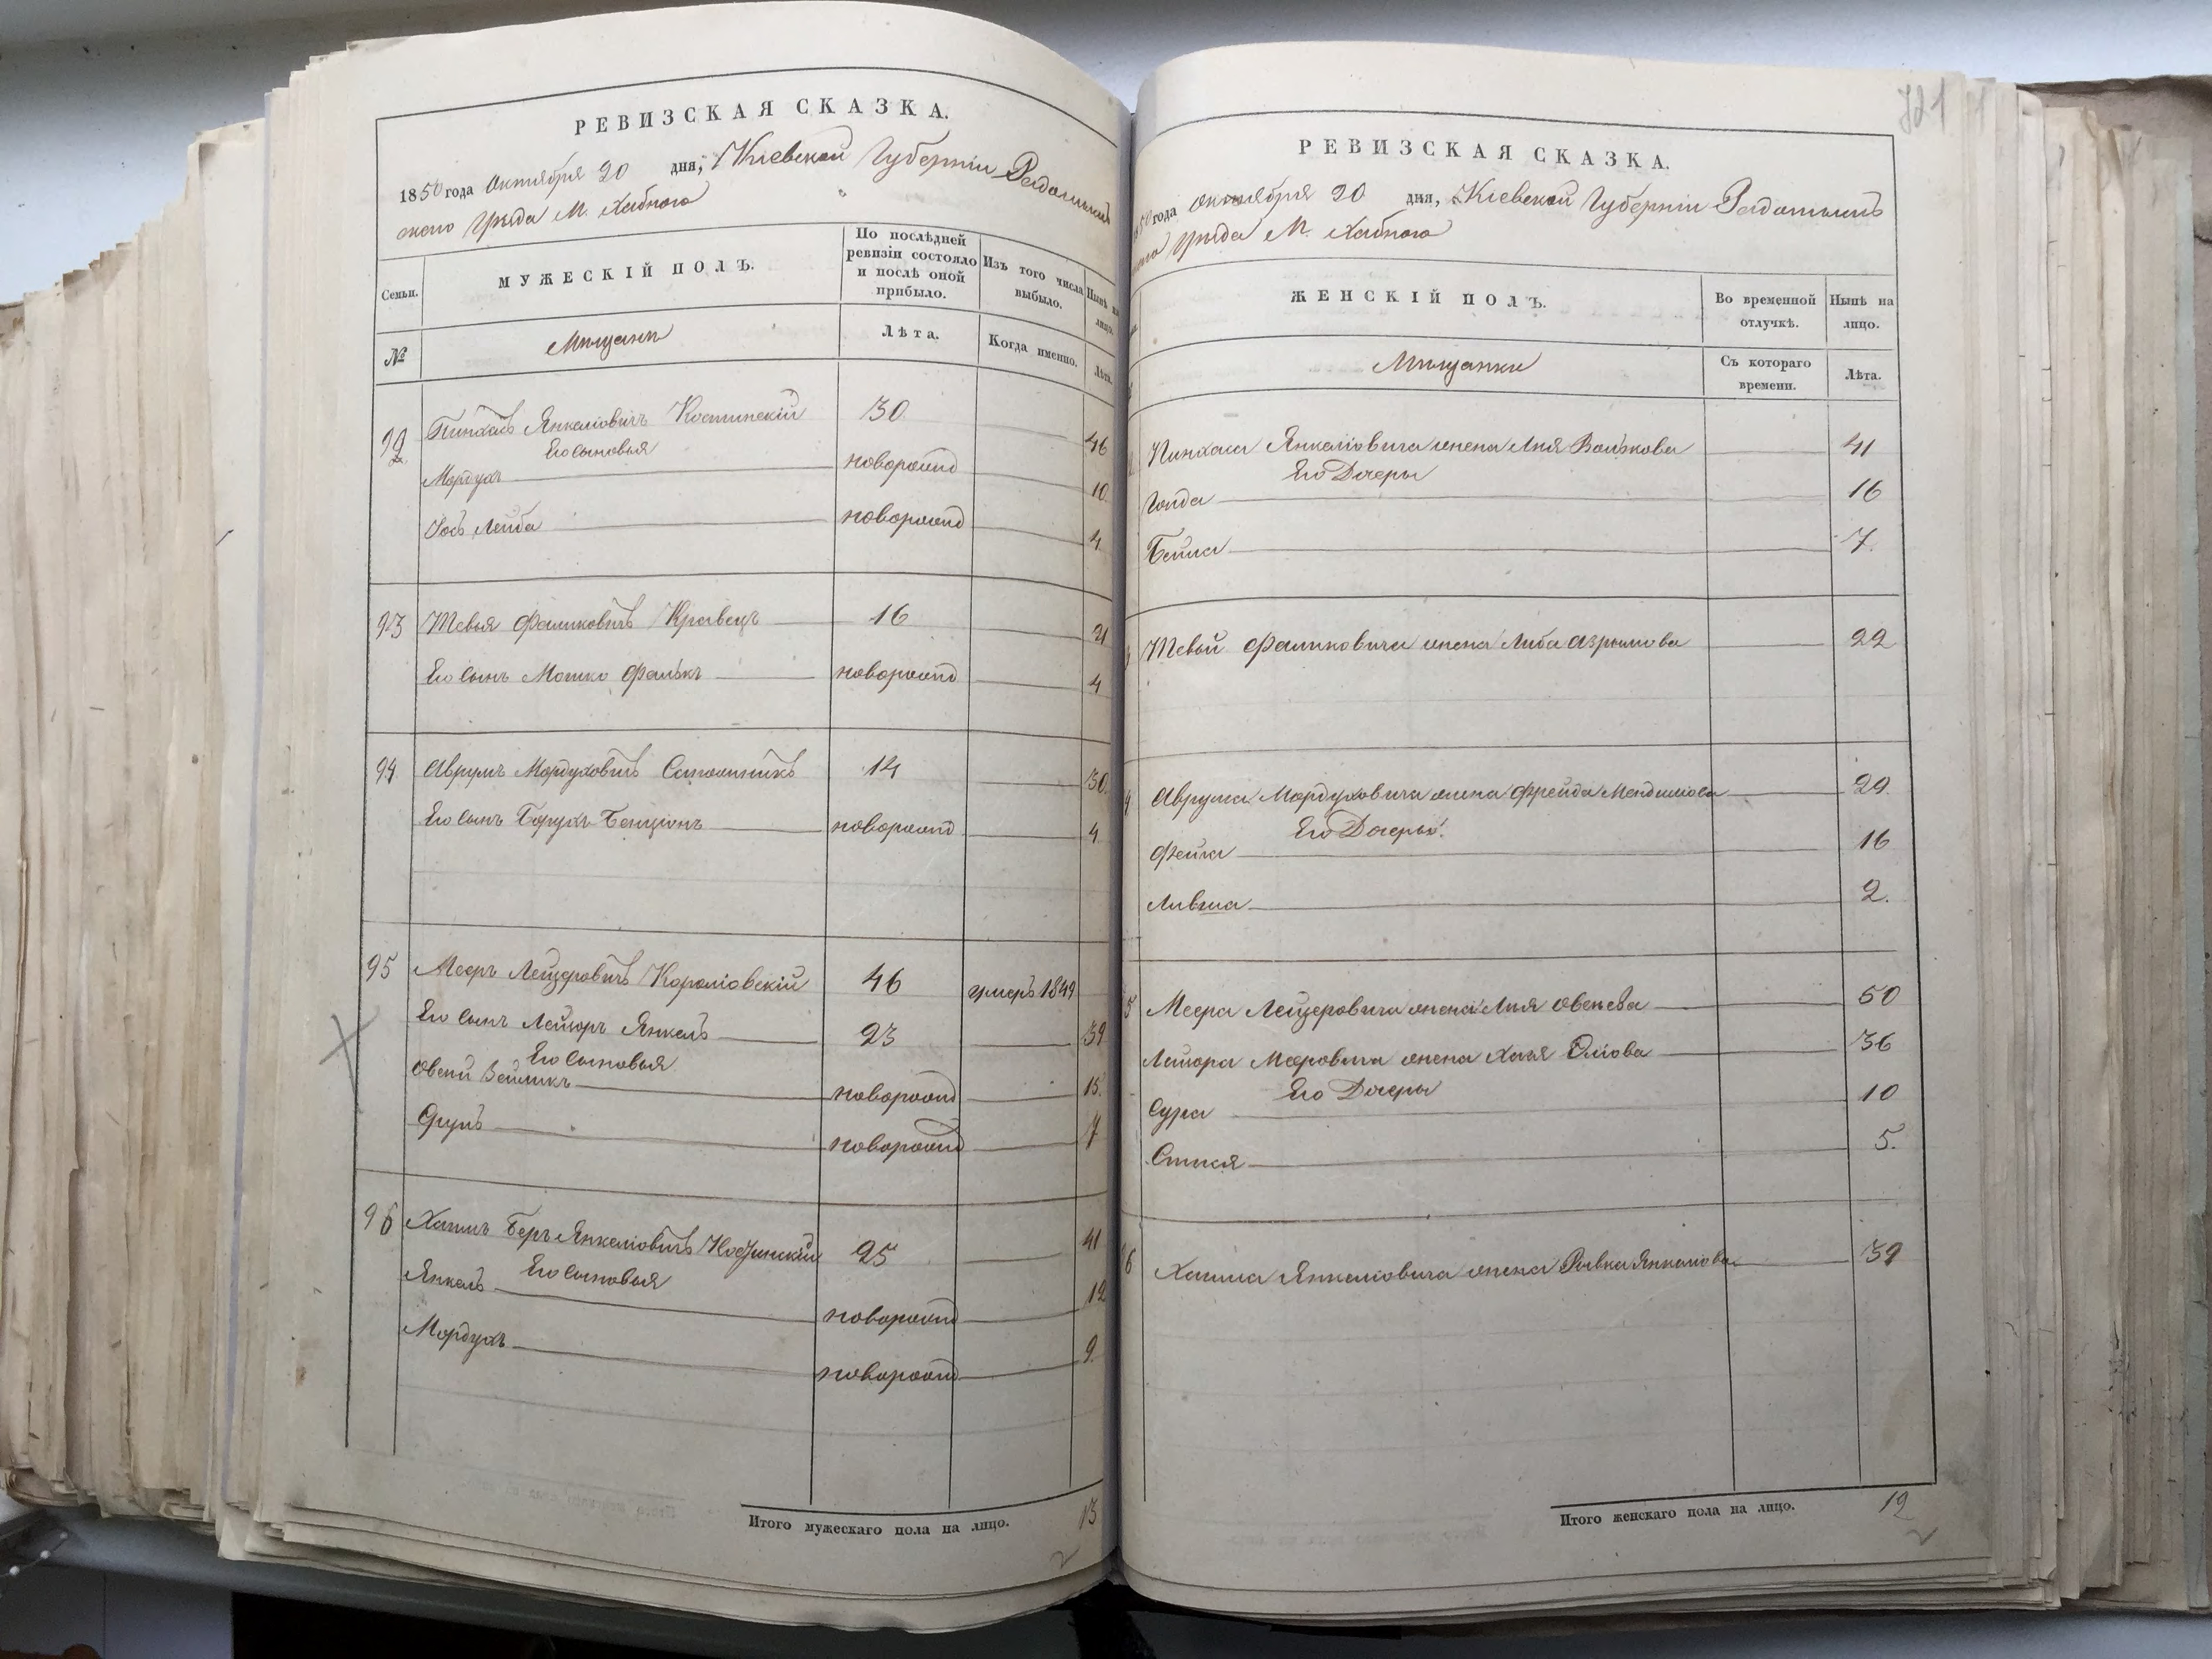 РЕВИЗСКАЯ СКАЗКА.
1850 года Октября 20 дня, Кіевской Губерніи Радомысль
скаго Уѣзда М. Хабного
Семьи. МУЖЕСКІЙ ПОЛЪ. По послѣдней ревизіи состояло и послѣ оной прибыло. Изъ того числа выбыло. Нынѣ на лицо.
№ Мѣщане Лѣта. Когда именно. Лѣта.
92 Пинхасъ Янкеліовичъ 30 46
Его сыновья
Мордухъ новорожд 10
Іосъ Лейба новорожд 4
93 Тевья Фаликовичъ Кравецъ 16 21
Его сынъ Мошко Фалькъ новорожд 4
94 Аврумъ Мордуховичъ 14 30
Его сынъ Борухъ Бенціонъ новорожд 4
95 Мееръ Лейзеровичъ 46 умеръ 1849
Его сынъ Янкель 23 39
Его сыновья
Овсей Зейликъ новорожд 15
новорожд 7
96 Хаимъ Беръ Янкеліовичъ 25 41
Его сыновья
Янкель новорожд 12
Мордухъ новорожд 9
Итого мужескаго пола на лицо. 13
721
РЕВИЗСКАЯ СКАЗКА.
года Октября 20 дня, Кіевской Губерніи Радомысль
Уѣзда М. Хабного
ЖЕНСКІЙ ПОЛЪ. Во временной отлучкѣ. Нынѣ на лицо.
Мѣщанки Съ котораго времени. Лѣта.
Пинхаса Янкеліовича жена Лия Волькова 41
Его Дочеры
Голда 16
Бейла 7.
Тевьи Фаликовича жена Либа Азрилова 22
Аврума Мордуховича жена Фрейда Менделіова 29.
Его Дочеры
Фейга 16
Ливша 2.
5 Меера Лейзеровича жена Лия Овсеева 50
Мееровича жена Хая 36
Его Дочеры
Сура 10
5.
6 Хаима Янкеліовича жена Ривка Янкелова 39
Итого женскаго пола на лицо. 12